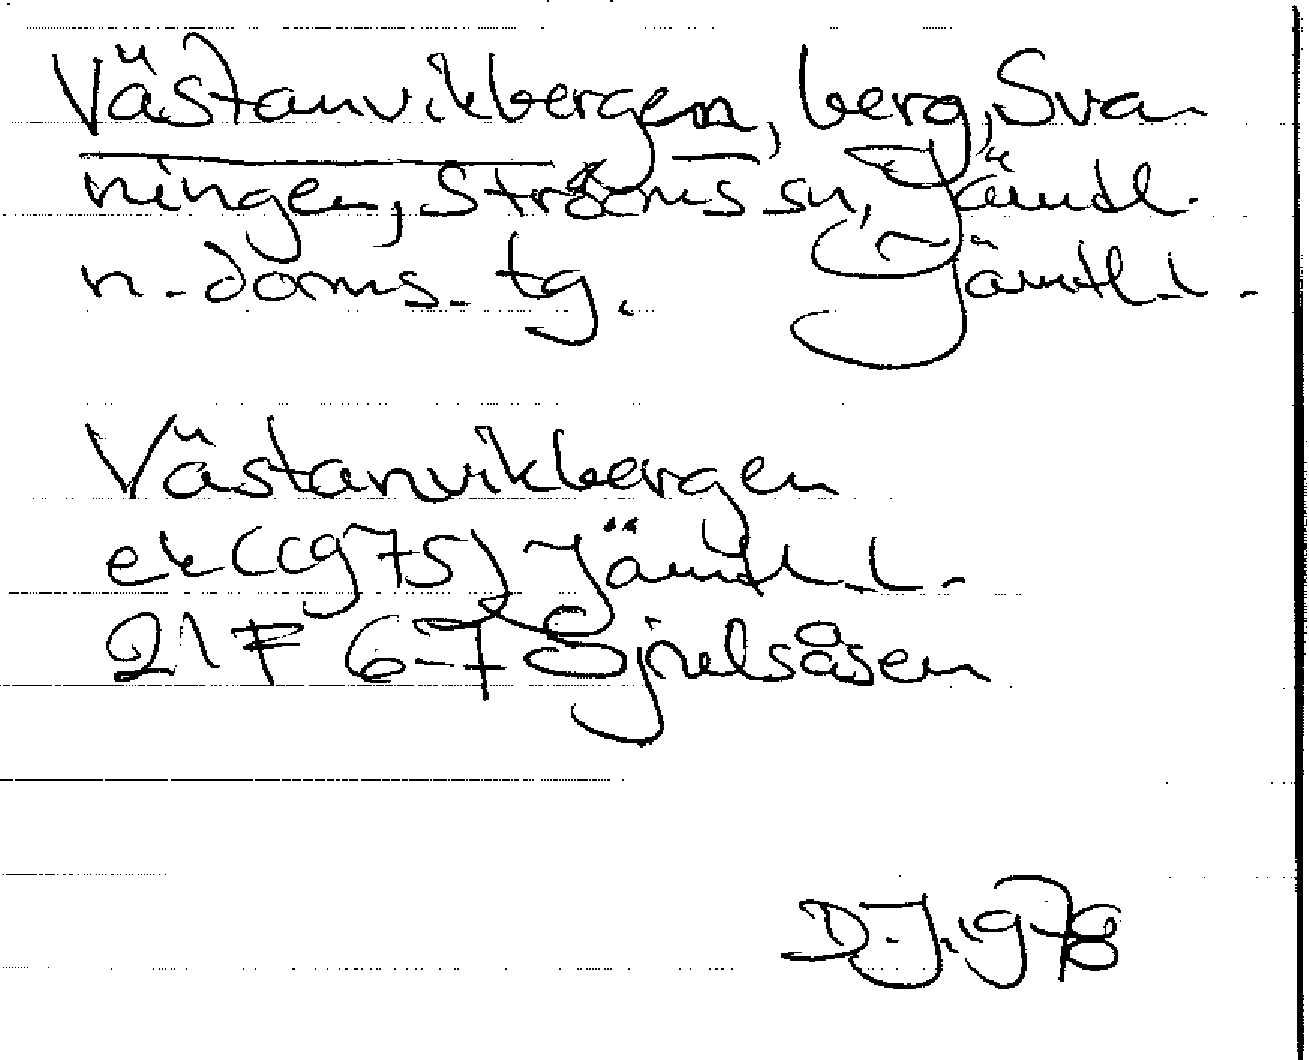 Västanvikbergen, berg, Sva-
ningen, Ströms sn, Jämtl.
n. doms. tg. Jämtl. l.
Västanvikbergen
ek (cg75) Jämtl. l.
21F 6-7 Sjnelsåsen
D.J. 1978